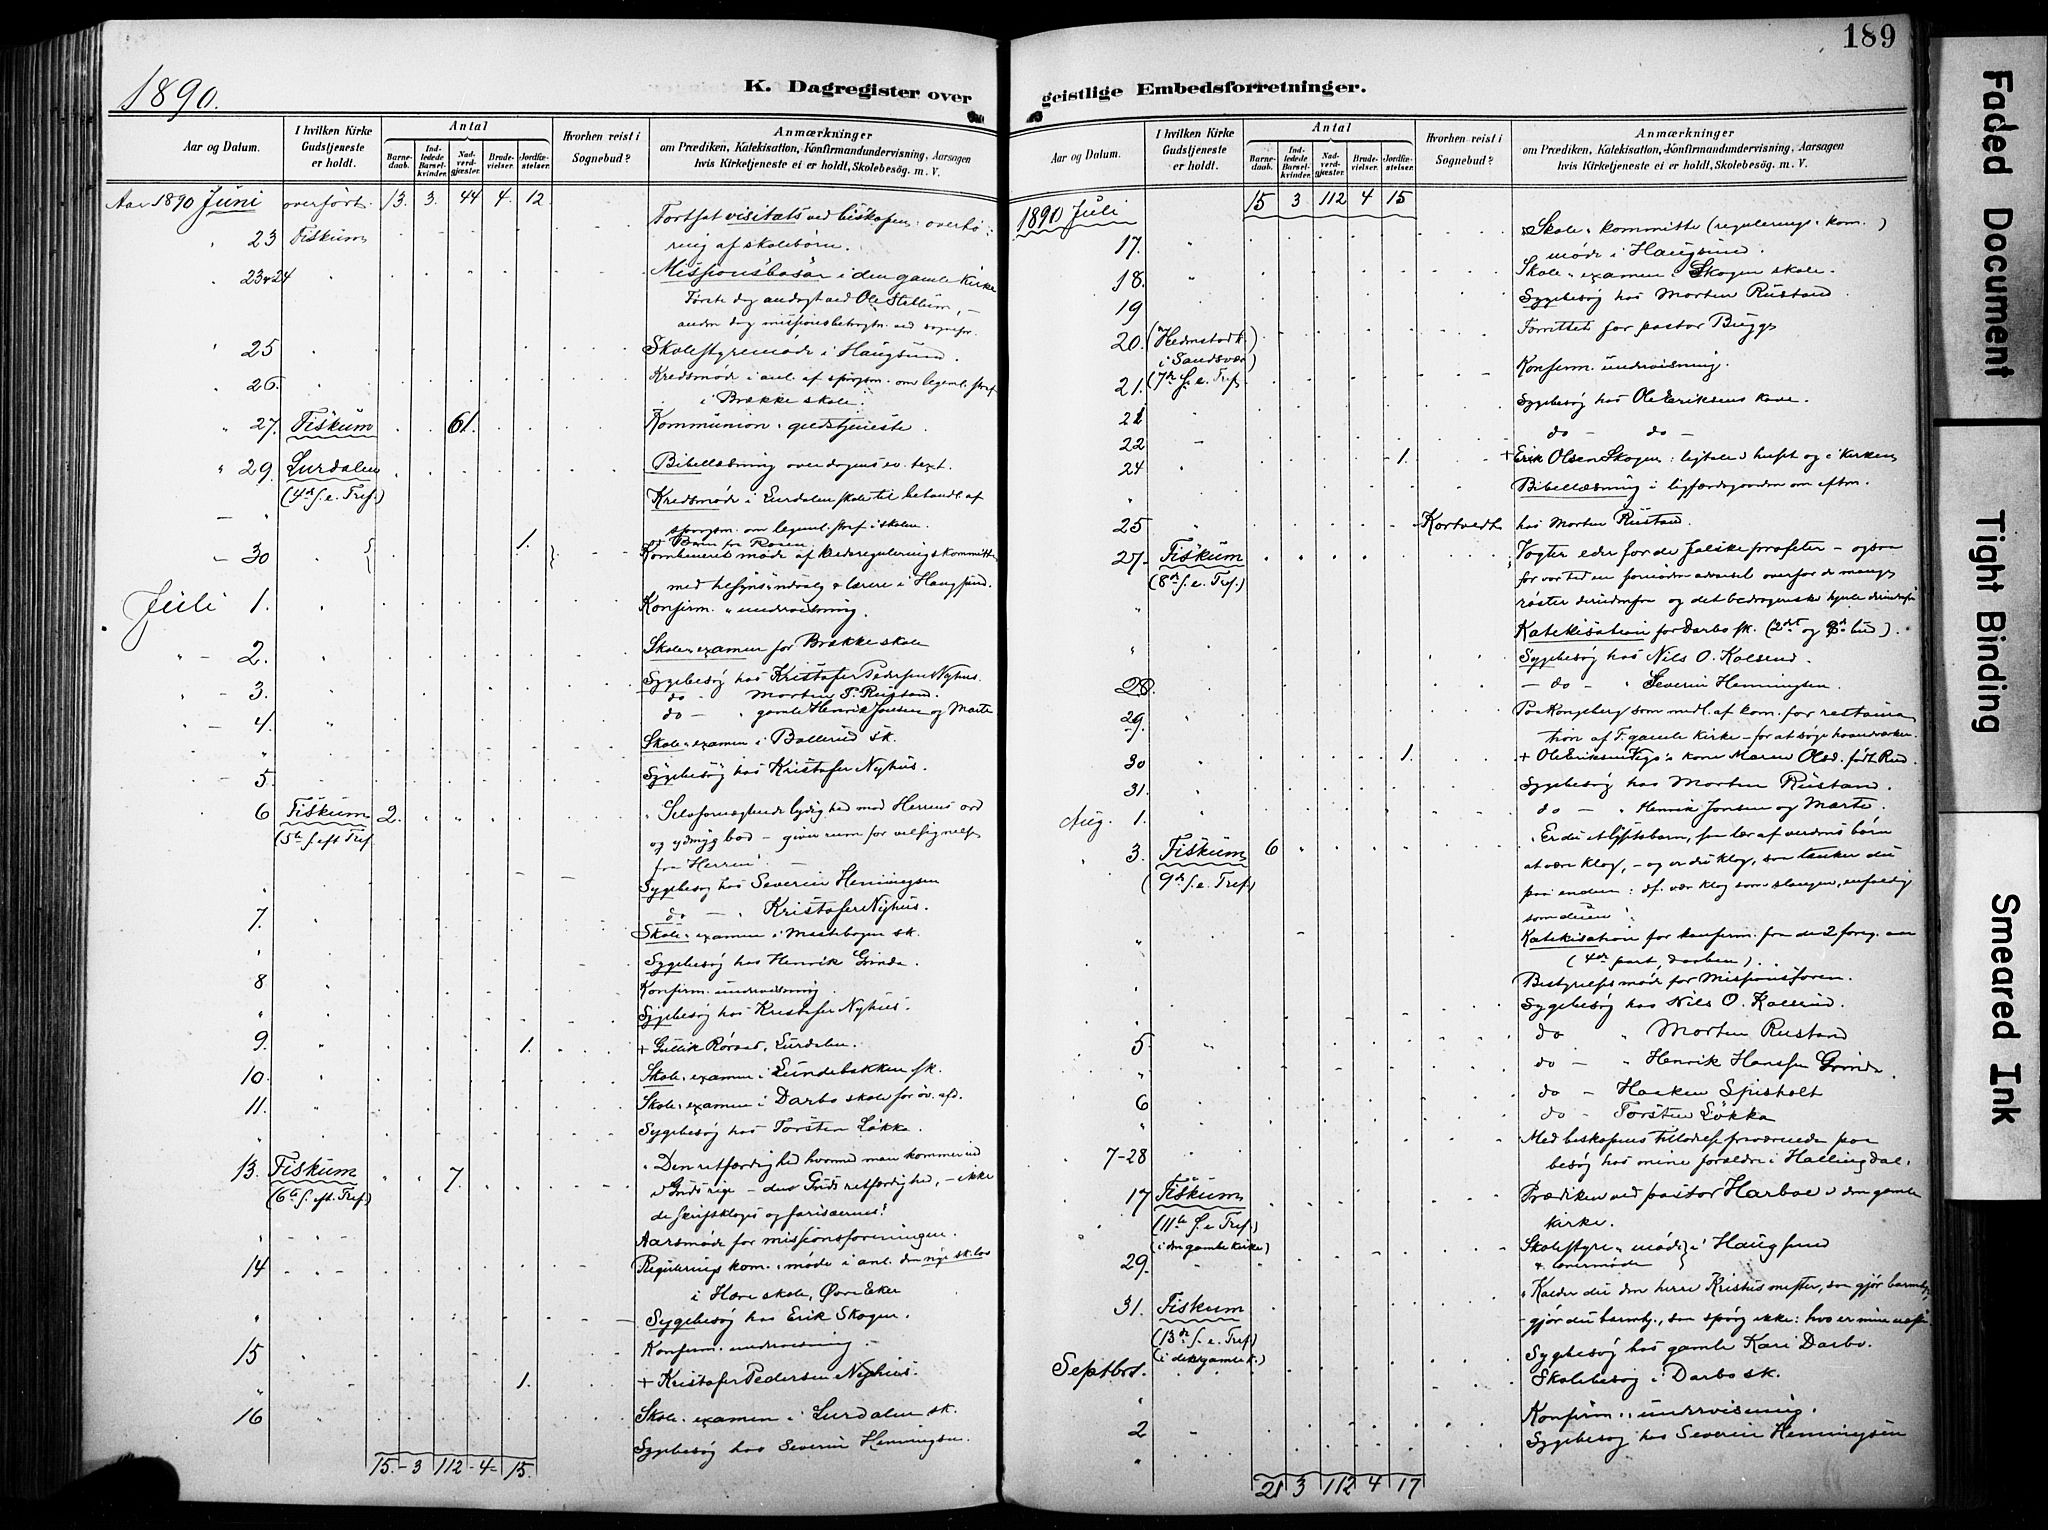 189
1890.
K. Dagregister over
geistlige Embedsforretninger.
Aar og Datum. I hvilken Kirke Gudstjeneste er holdt. Antal Barnedaab. Indledede Barselkvinder. Nadverdgjæster. Brudevielser. Jordfæstelser. Hvorhen reist i Sognebud? Anmærkninger om Prædiken, Katekisation, Konfirmandundervisning, Aarsagen hvis Kirketjeneste ei er holdt, Skolebesøg. m. V.
Aar 1890 Juni overført. 13. 3. 44 4. 12.
23 Fiskum Fortsat visitats ved biskopen: overhø-
ring af skolebørn.
23 & 24 Missionsbasar i den gamle kirke
Første dag andagt ved Ole Stellum, –
anden dag missionsbetragtn. ved sognepr.
25 Skolestyremøde i Haugsund.
26. Kredsmøde i anl. af spørgsm. om legeml. straf
i Brække skole.
27. Fiskum 61. Kommunion-gudstjeneste.
29 Lurdalen Bibellæsning over dagens ev. text.
(4de S. e. Tref.) Kredsmøde i Lurdalen skole til behandl. af
spørgsm. om legeml. straf i skolen.
1. Barn fra Rosen
30 Kombineret møde af kredsreguleringskommitte
med tilsynsudvalg & lærere i Haugsund.
Juli 1. Konfirm. undervisning.
2. Skole-examen for Brække skole
3. Sygebesøg hos Kristofer Pedersen Nyhus.
do – Morten T. Rustand.
4. do – " gamle Henrik Jonsen og Marte
" Skole-examen i Bollerud sk.
5 Sygebesøg hos Kristofer Nyhus.
6 Fiskum 2. "Selvfornegtende lydighed mod Herrens ord
(5te S. eft. Tref. og ydmyg bod – giver rum for velsignelse
fra Herren".
" Sygebesøg hos Severin Henningsen
7. do – " Kristofer Nyhus.
" Skole-examen i Mustebogen sk.
8 Sygebesøg hos Henrik Grinda.
Konfirm. undervisning.
" Sygebesøg hos Kristofer Nyhus.
9. 1. + Gullik Rørvad, Lurdalen.
10. Skole-examen i Lundebakken sk.
11. Skole-examen i Darbo skole for øv. afd.
" Sygebesøg hos Torsten Løkka.
13. Fiskum 7. "Den retfærdighed hvormed man kommer ind
(6te S. eft. Tref.) i Guds rige – dens Guds retfærdighed, – ikke
de skriftkloges og farisæernes".
" Aarsmøde for missionsforeningen.
14 Regulerings kom.-møde i anl. den nye sk. lov
i Hære skole, Øvre Eker
" Sygebesøg hos Erik Skogen.
15 Konfirm. undervisning.
" 1. + Kristofer Pedersen Nyhus.
16 Skole-examen i Lurdalen sk.
Sygebesøg hos Severin Henningsen.
15. – 3 112 – 4 – 15.
Aar og Datum. I hvilken Kirke Gudstjeneste er holdt. Antal Barnedaab. Indledede Barselkvinder. Nadverdgjæster. Brudevielser. Jordfæstelser. Hvorhen reist i Sognebud? Anmærkninger om Prædiken, Katekisation, Konfirmandundervisning, Aarsagen hvis Kirketjeneste ei er holdt, Skolebesøg. m. V.
15 3 112 4 15
1890 Juli
17. Skole-kommitte (regulerings-kom.)
møde i Haugsund.
18. Skole-examen i Skogen skole.
19 Sygebesøg hos Morten Rustand
20. (Hedenstad k. Forrettet for pastor Bugge
i Sandsvær)
21. (7de S. e. Tref. Konfirm. undervisning.
21 Sygebesøg hos Ole Eriksens kone.
22 do – do –
24 1. + Erik Olsen Skogen: ligtale i huset og i kirken
" Bibellæsning i ligfærdsgaarden om efterm.
25 Kortvedt hos Morten Rustand.
27. Fiskum Vogter eder for de falske profeter – ogsaa
(8de S. e. Tref.) for vor tid en fornøden advarsel overfor de mange
røster derudenfra og det bedragerske hjerte derindenfra
" Katekisation for Darbo sk. (2det og 8de bud).
" Sygebesøg hos Nils O. Kolsrud.
28. – do – " Severin Henningsen.
29 Paa Kongsberg som medl. af kom. for restaura-
tion af F. gamle kirke – for at søge haandværker.
30 1. + Ole Eriksen Vego's kone Maren Olsd. født Rud.
31. Sygebesøg hos Morten Rustand.
Aug. 1. do – " Henrik Jonsen og Marte.
3. Fiskum 6 "Er du et lysets barn, saa lær af verdens børn
(9de S. e. Tref.) at være klog, – og er du klog, saa tænker du
paa enden: df. vær klog som slangen, enfoldig
som duen".
" Katekisation for konfirm. fra de 2 foreg. aar
(4de part, daaben).
Bestyrelsesmøde for Missionsforen.
" Sygebesøg hos Nils O. Kolsrud.
5. do " Morten Rustand
" do – " Henrik Hansen Grinda.
6 do – Haaken Spisholt
" do – Torsten Løkka
7–28 Med biskopens tilladelse fraværende paa
besøg hos mine forældre i Hallingdal.
17 Fiskum Prædiken ved pastor Harboe i den gamle
(11te S. e. Tref.) kirke.
(i den gamle kirke) Skolestyre-møde } i Haugsund
29. & lærermøde
31. Fiskum "Kalder du den herre Kristus mester, som gjør barmhj.,
(13de S. e. Tref.) – gjør du barmhj., saa spørg ikke: hvo er min næste
(i den gamle k.) Sygebesøg hos gamle Kari Darbo.
Septbr. 1. Skolebesøg i Darbo sk.
" Konfirm.-undervisning.
2 Sygebesøg hos Severin Henningsen
21 3 112 4 17
Faded Document
Tight Binding
Smeared Ink